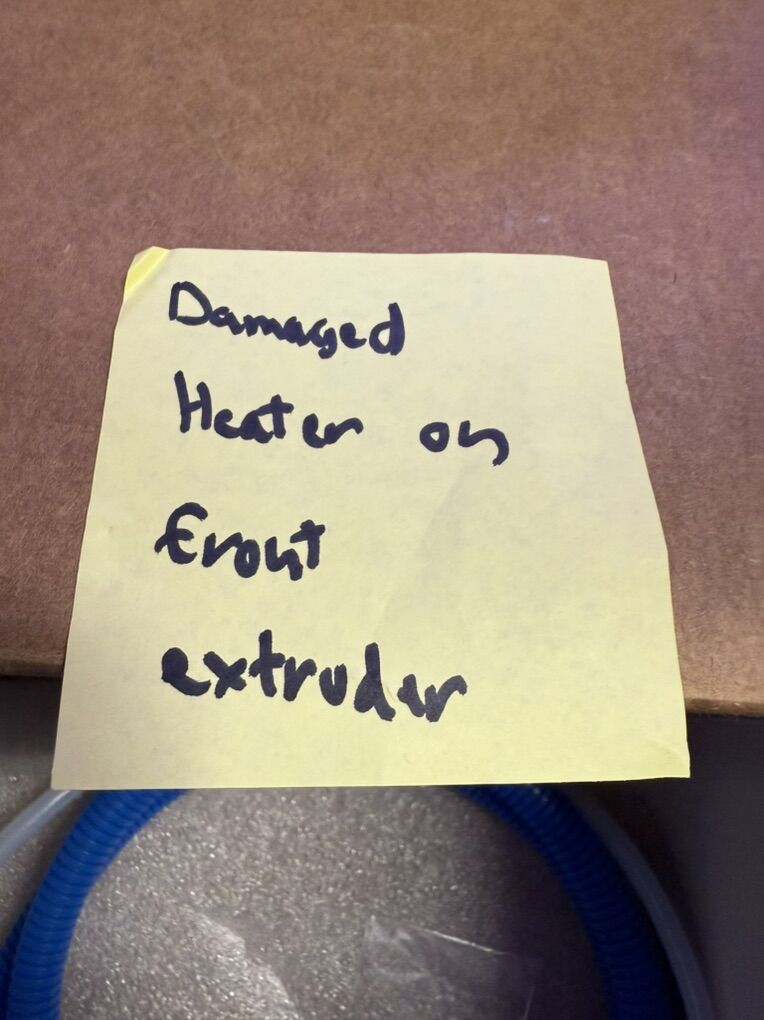 Damaged
Heater on
front
extruder